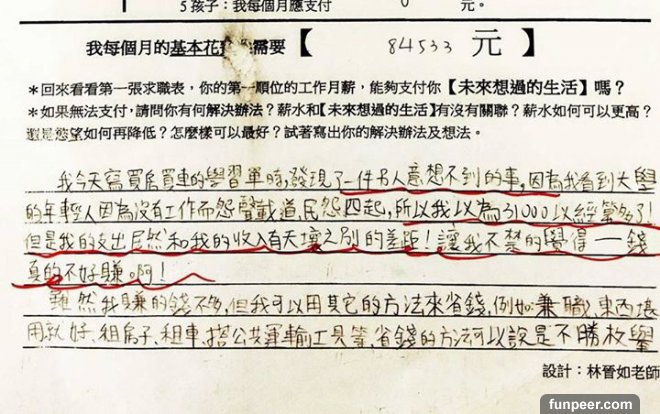 5 孩子：我每個月應支付 0 元。
我每個月的基本花 需要【 84533 元】
＊回來看看第一張求職表，你的第一順位的工作月薪，能夠支付你【未來想過的生活】嗎？
＊如果無法支付，請問你有何解決辦法？薪水和【未來想過的生活】有沒有關聯？薪水如何可以更高？
還是慾望如何再降低？怎麼樣可以最好？試著寫出你的解決辦法及想法。
我今天寫買房買車的學習單時，發現了一件另人意想不到的事，因為我看到大學
的年輕人因為沒有工作而怨聲載道，民怨四起，所以我以為31000以經算多了！
但是我的支出居然和我的收入有天壤之別的差距！讓我不禁的覺得—錢
真的不好賺啊！
雖然我賺的錢不多，但我可以用其它的方法來省錢，例如兼職、東西堪
用就好、租房子、租車、搭公共運輸工具等，省錢的方法可以說是不勝枚舉
設計：林晉如老師
funpeer.com